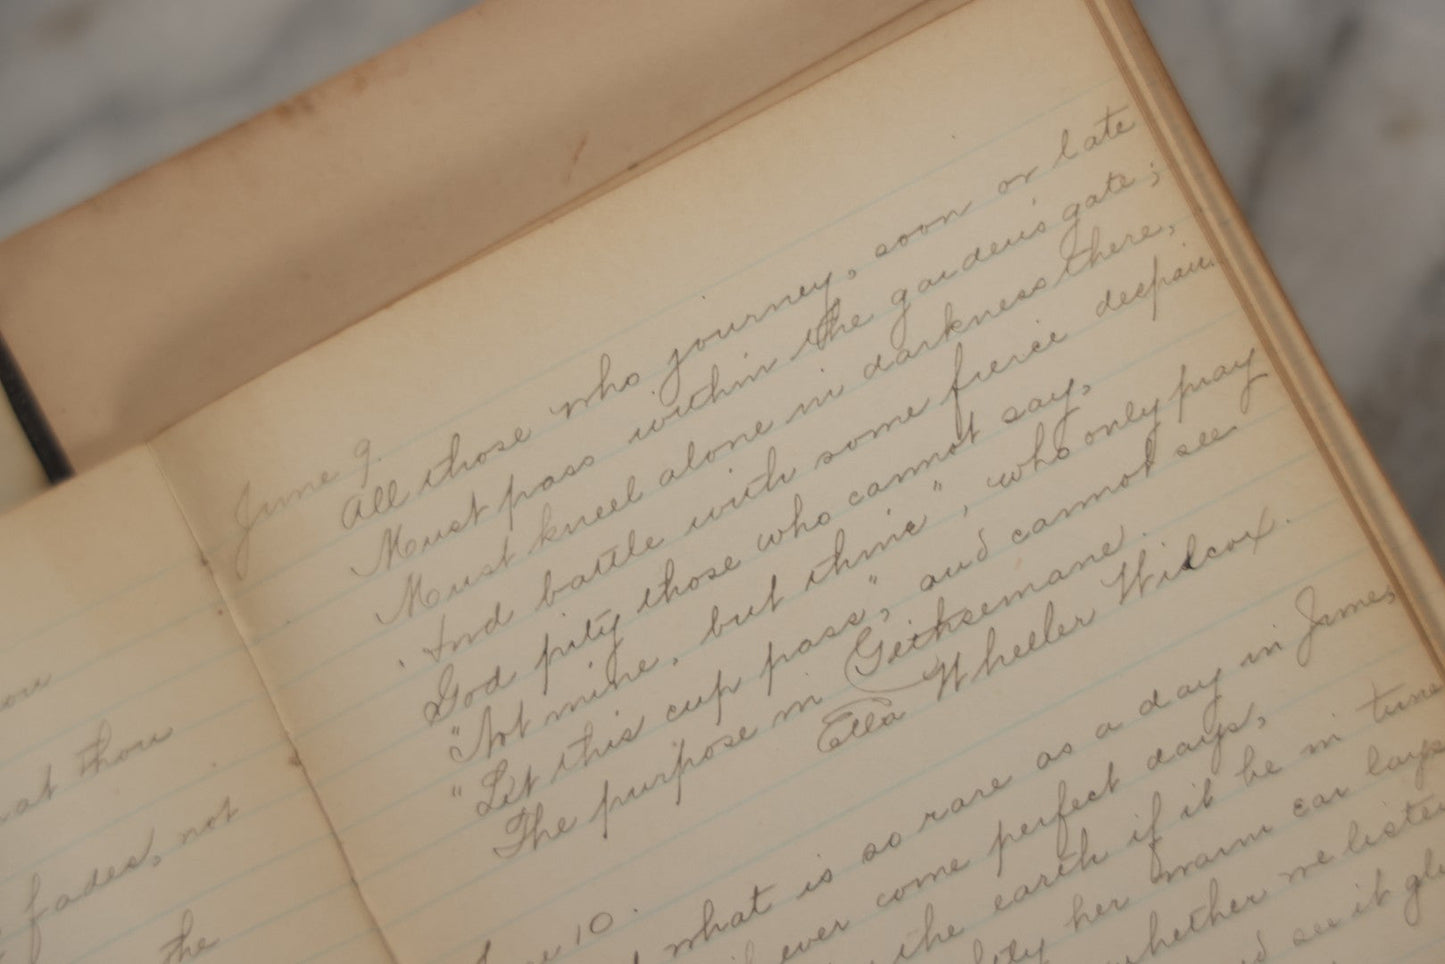 at thou
fades, not
the
June 9.
All those who journey, soon or late
Must pass within the garden's gate;
Must kneel alone in darkness there,
And battle with some fierce despair.
God pity those who cannot say,
"Not mine, but thine", who only pray
"Let this cup pass", and cannot see
The purpose in Gethsemane.
Ella Wheeler Wilcox.
10.
what is so rare as a day in June,
ever come perfect days,
the earth if it be in tune
her warm ear lays
whether we listen
see it